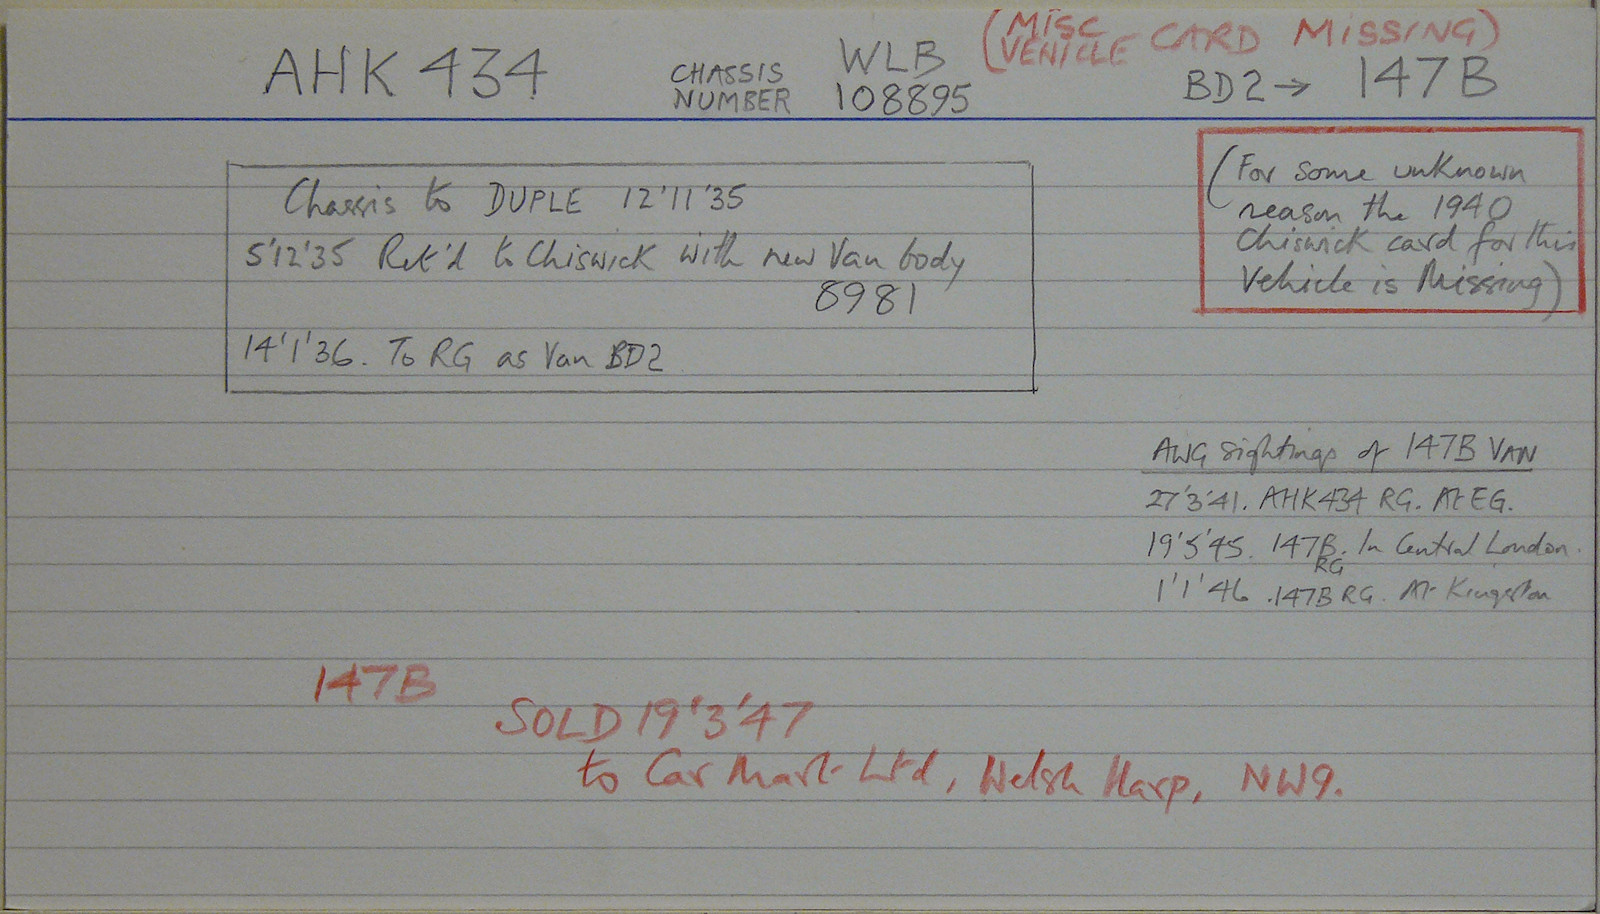 (MISC
VEHICLE CARD MISSING)
AHK 434
CHASSIS
NUMBER
WLB
108895
BD2 → 147B
(For some unknown
reason the 1940
Chiswick card for this
Vehicle is Missing)
Chassis to DUPLE 12'11'35
5'12'35 Ret'd to Chiswick with new Van body
8981
14'1'36. To RG as Van BD2
AWG sightings of 147B VAN
27'3'41. AHK434 RG. At EG.
19'5'45. 147B. In Central London.
RG
1'1'46 .147B RG. At Kingston
147B
SOLD 19'3'47
to Car Mart Ltd, Welsh Harp, NW9.